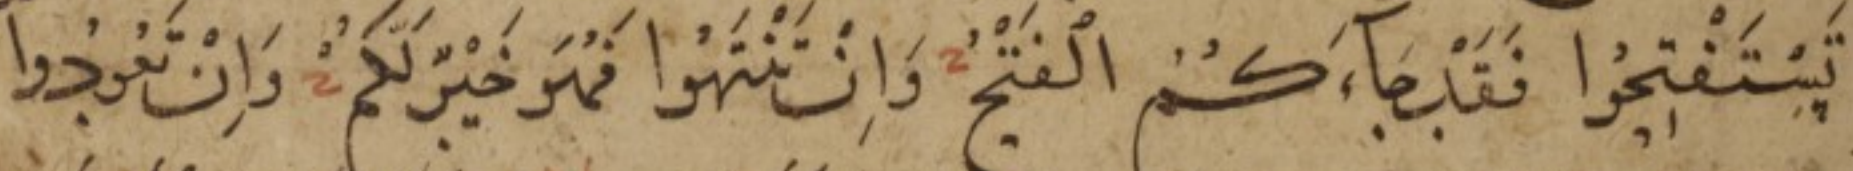 تَسْتَفْتِحُوا فَقَدْ جَآءَكُمُ الْفَتْحُ ۚ وَاِنْ تَنْتَهُوا فَهُوَ خَيْرٌ لَّكُمْ ۚ وَاِنْ تَعُودُوا